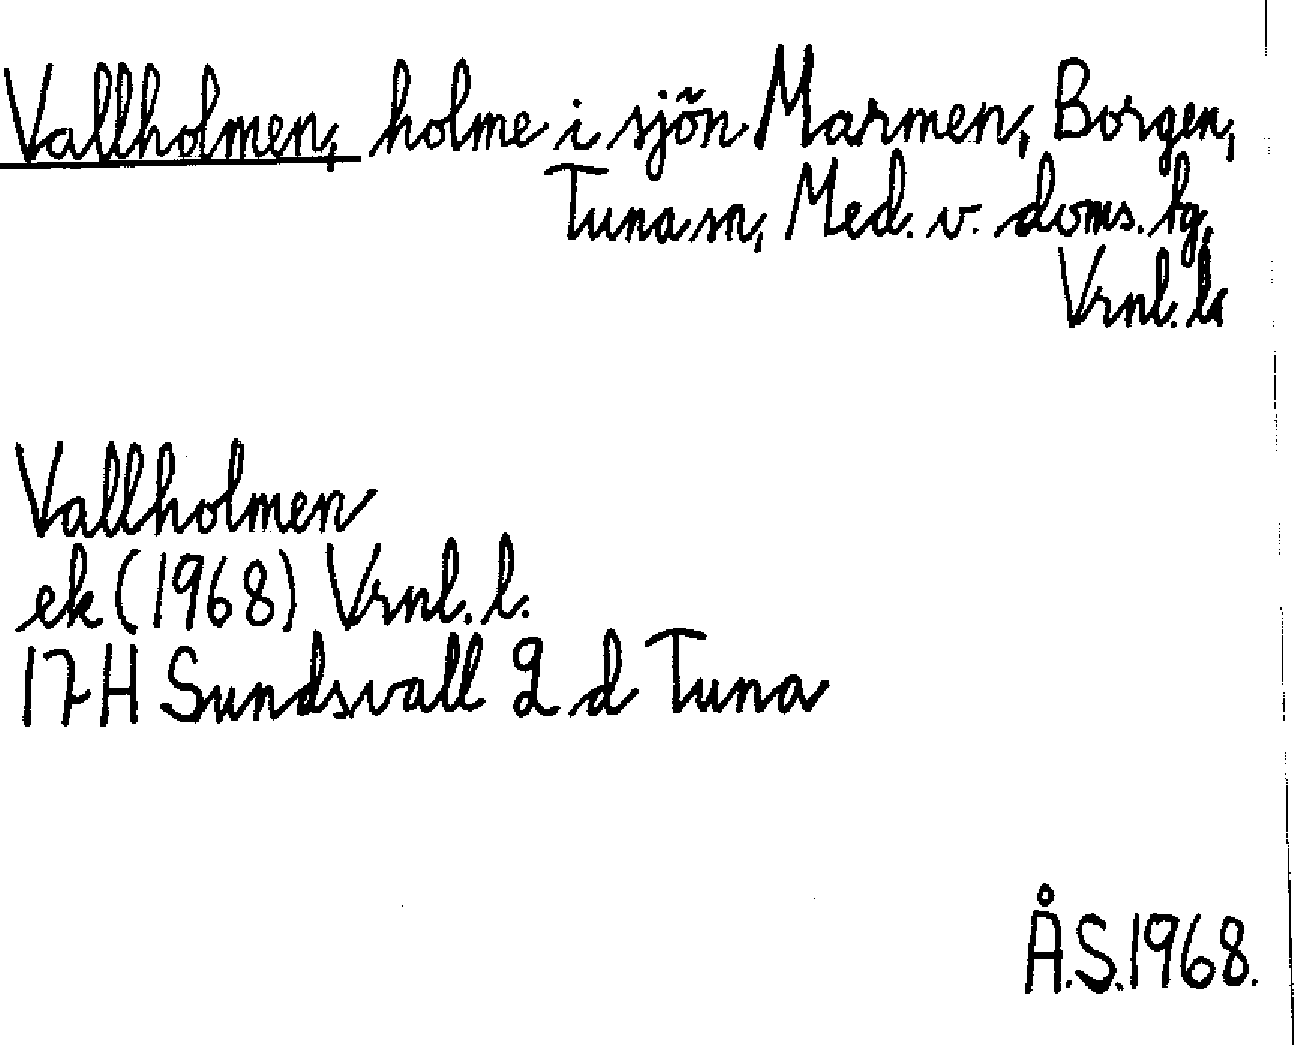 Vallholmen, holme i sjön Marmen, Borgen,
Tuna sn, Med. v. doms. tg,
Vrnl. l.
Vallholmen
ek (1968) Vrnl. l.
17H Sundsvall 2 d Tuna
Å.S. 1968.